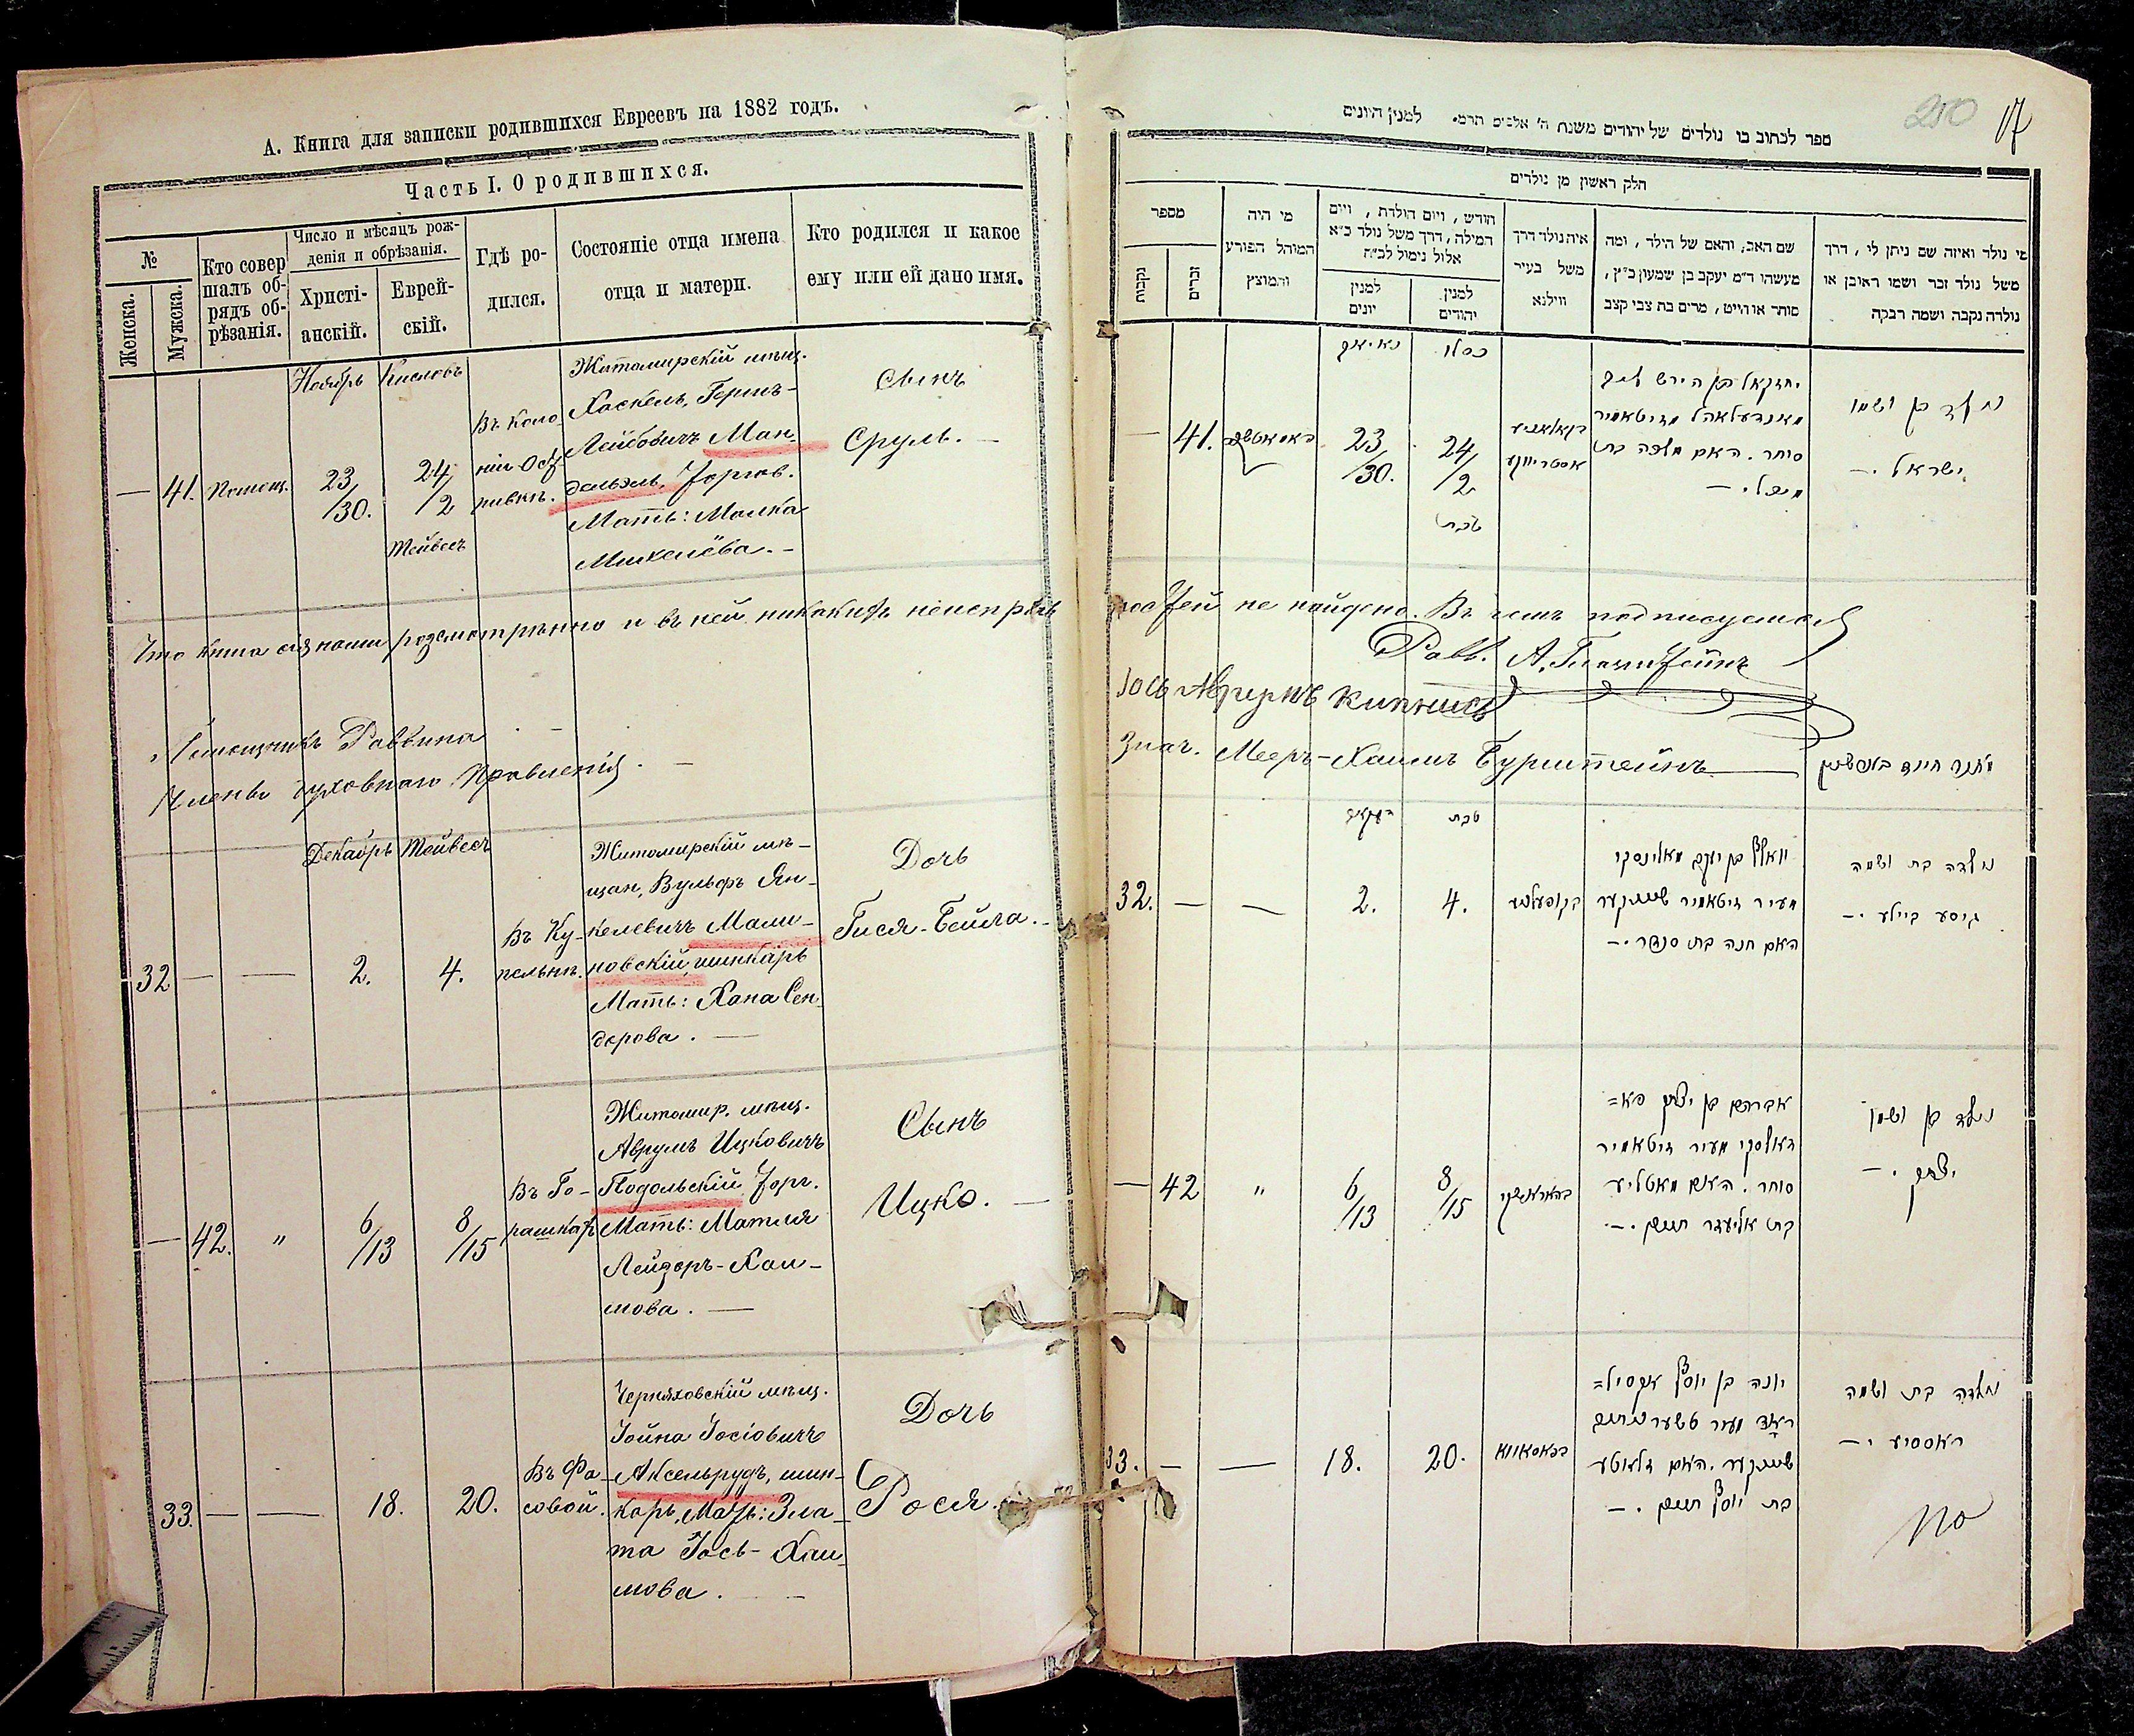 А. Книга для записки родившихся Евреевъ на 1882 годъ.
Часть I. О родившихся.
№
Женска.
Мужска.
Кто совер
шалъ об-
рядъ об-
рѣзанія.
Число и мѣсяцъ рож-
денія и обрѣзанія.
Христі-
анскій.
Еврей-
скій.
Гдѣ ро-
дился.
Состояніе отца имена
отца и матери.
Кто родился и какое
ему или ей дано имя.
Ноябрь
Кислевъ
— 41.
Помощ.
23/30.
24/2
Тейвесъ
Въ Коло
ніи Ост
Житомирскій мѣщ.
Хаскель, Гершъ-
Лейбовичъ Ман
дельэль, Торгов.
Мать: Малка
Михелёва. —
Сынъ
Сруль. —
Что книга сія нами розсмотрѣнно и въ ней никакихъ неисправ
ностей не найдено. Въ чемъ подписуемся
Помощникъ Раввина
Равв. А.
Члены духовнаго Правленія. —
Іось Аврумъ Кипнисъ
Знач. Мееръ-Хаимъ Бурштейнъ
Декабрь
Тейвесъ
32 — —
2.
4.
Въ Ку-
Житомирскій мѣ-
щан, Вульфъ Ян-
келевичъ Мали-
новскій, шинкарь
Мать: Хана Сен
дерова. —
Дочь
Гися-Бейла. —
— 42. "
6/13
8/15
Въ Го-
рашках
Житомир. мѣщ.
Аврумъ Ицковичъ
Подольскій Торг.
Мать: Матля
Лейзоръ-Хаи-
мова. —
Сынъ
Ицко. —
33. — —
18.
20.
Въ Фа-
совой.
Черняховскій мѣщ.
Іойна Іосіовичъ
Аксельрудъ, шин-
карь, Мать: Зла-
та Іось-Хаи-
мова. —
Дочь
Рося.
250 17
ספר לכתוב בו נולדים של יהודים משנת ה' אלפים תרמ" למנין היונים
חלק ראשון מן נולדים
מספר
נקבות
זכרים
מי היה
המוהל הפורע
והמוצץ
חודש, ויום הולדת, ויום
המילה, דרך משל נולד כ״א
אלול נימול לכ״ח
למנין
יונים
למנין
יהודים
איה נולד דרך
משל בעיר
ווילנא
שם האב, והאם של הילד, ומה
מעשהו ד״מ יעקב בן שמעון כ״ץ,
סוחר או חייט, מרים בת צבי קצב
מי נולד ואיזה שם ניתן לו, דרך
משל נולד זכר ושמו ראובן או
נולדה נקבה ושמה רבקה
כסלו
— 41.
23/30.
24/2
טבת
יחזקאל בן הירש ליב
סוחר. האם מלכה בת
נולד בן ושמו
ישראל. —
טבת
32. — —
2.
4.
האם חנה בת סנדר. —
נולדה בת ושמה
גיסע ביילע. —
— 42 "
6/13
8/15
אברהם בן יצחק פא=
דאלסקי מעיר זיטאמיר
סוחר. האם מאטליע
בת אליעזר חיים. —
נולד בן ושמו
יצחק. —
33. — —
18.
20.
יונה בן יוסף אקסיל=
שיינקער. האם זלאטע
בת יוסף חיים. —
נולדה בת ושמה
ראסיע. —
No